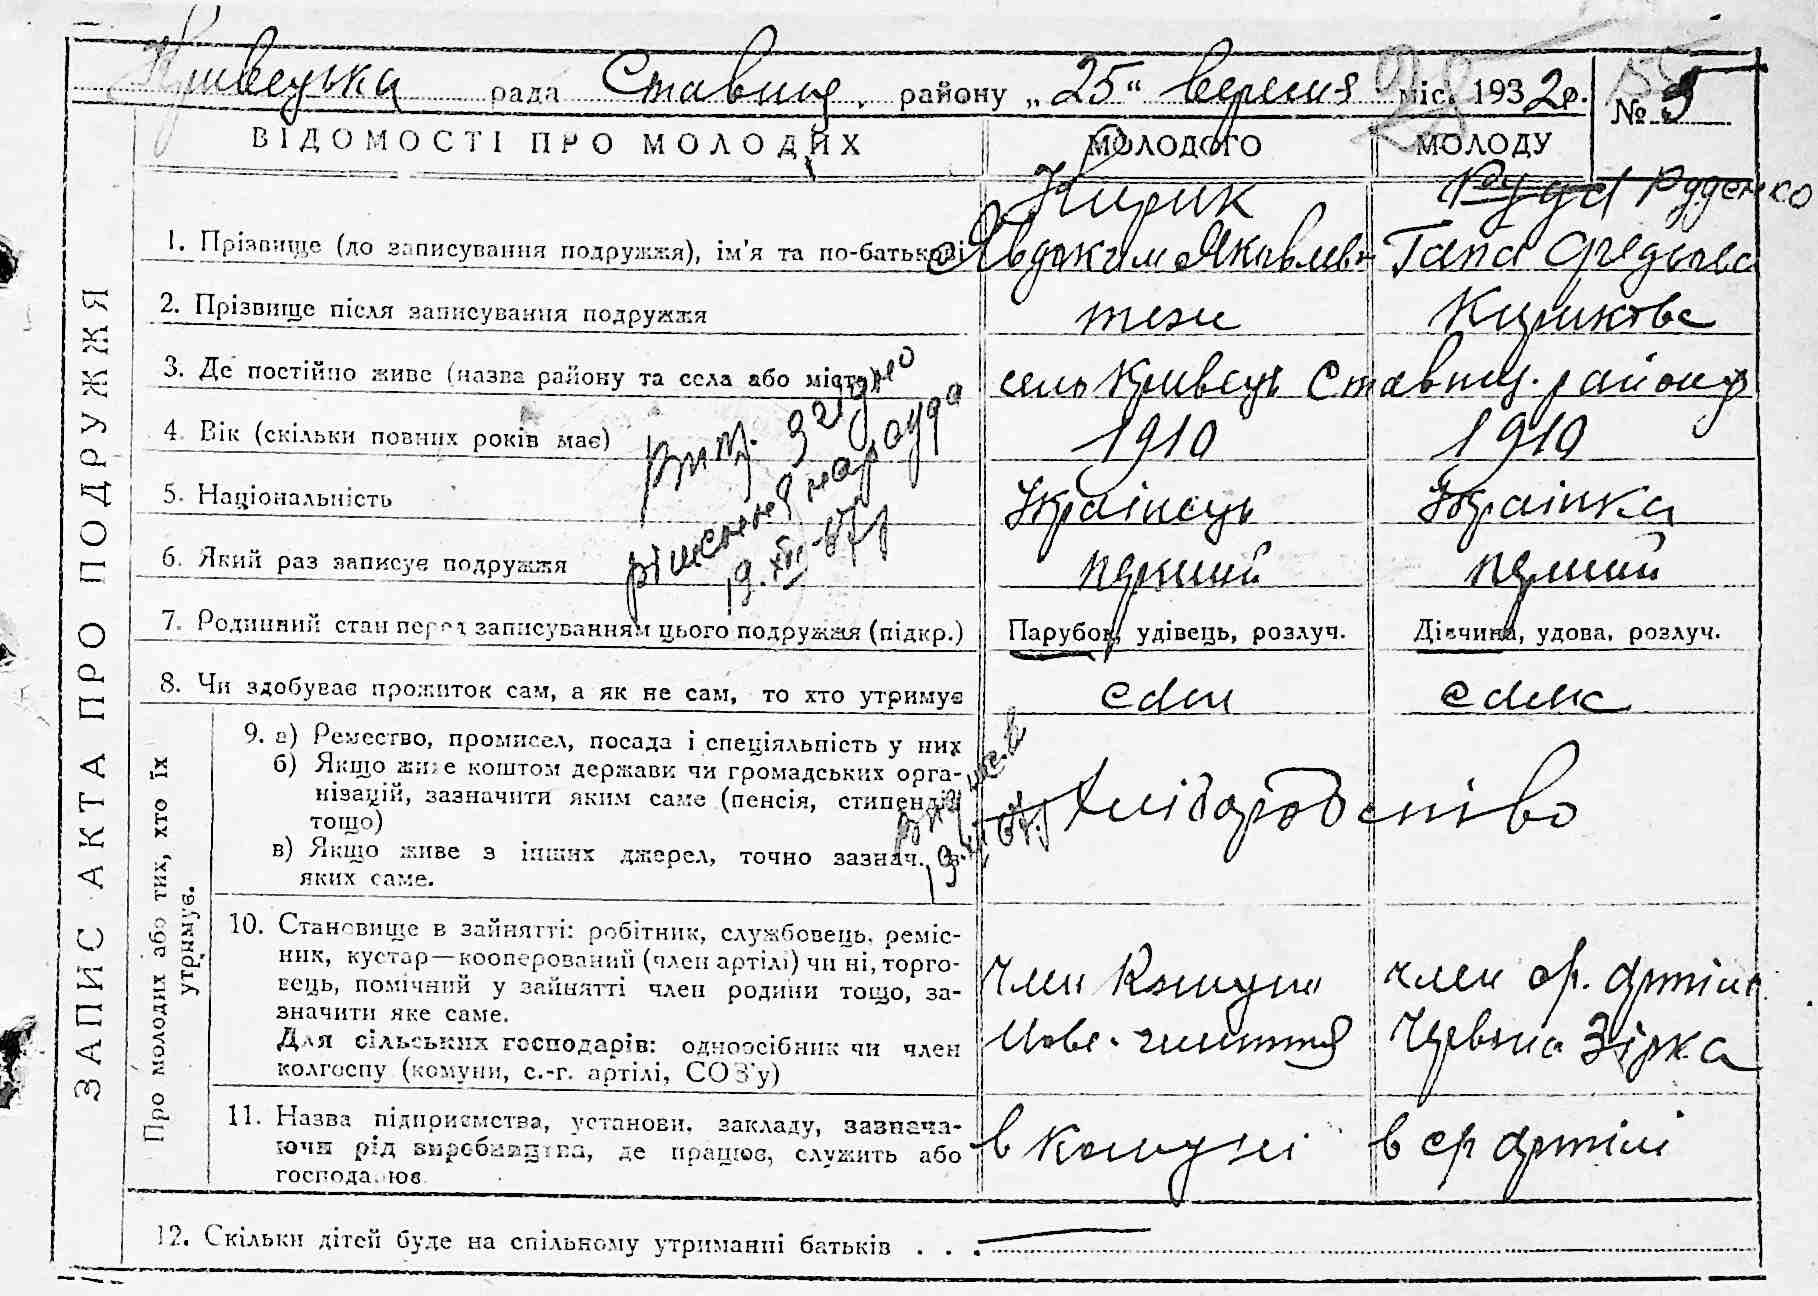 Кривецька рада Ставищ. району „25“ вересня міс. 1932 р. № 5
ВІДОМОСТІ ПРО МОЛОДИХ МОЛОДОГО МОЛОДУ
Кирик Руда Руденко
1. Прізвище (до записування подружжя), ім'я та по-батькові Явдоким Яковлев Гапа Федьова
2. Прізвище після записування подружжя теж Кирикова
3. Де постійно живе (назва району та села або міста) село Кривець Ставищ. району
4. Вік (скільки повних років має) 1910 1910
5. Національність Українець Українка
6. Який раз записує подружжя перший перший
7. Родинний стан перед записуванням цього подружжя (підкр.) Парубок, удівець, розлуч. Дівчина, удова, розлуч.
8. Чи здобуває прожиток сам, а як не сам, то хто утримує сам сама
Випр. згідно
рішення нарсуда
19.XII-67 р
ЗАПИС АКТА ПРО ПОДРУЖЖЯ
Про молодих або тих, хто їх
утримує.
9. а) Ремество, промисел, посада і спеціяльність у них
б) Якщо живе коштом держави чи громадських орга-
нізацій, зазначити яким саме (пенсія, стипендія
тощо)
в) Якщо живе з інших джерел, точно зазнач. з
яких саме.
Хліборобство
10. Становище в зайнятті: робітник, службовець, реміс-
ник, кустар—кооперований (член артілі) чи ні, торго-
вець, помічний у зайнятті член родини тощо, за-
значити яке саме.
Для сільських господарів: одноосібник чи член
колгоспу (комуни, с.-г. артілі, СОЗ'у)
член Комуни член ср. артіли
Нове життя Червона Зірка
11. Назва підприємства, установи, закладу, зазнача-
ючи рід виробництва, де працює, служить або
господарює
в комуні в ср артілі
12. Скільки дітей буде на спільному утриманні батьків . . . —